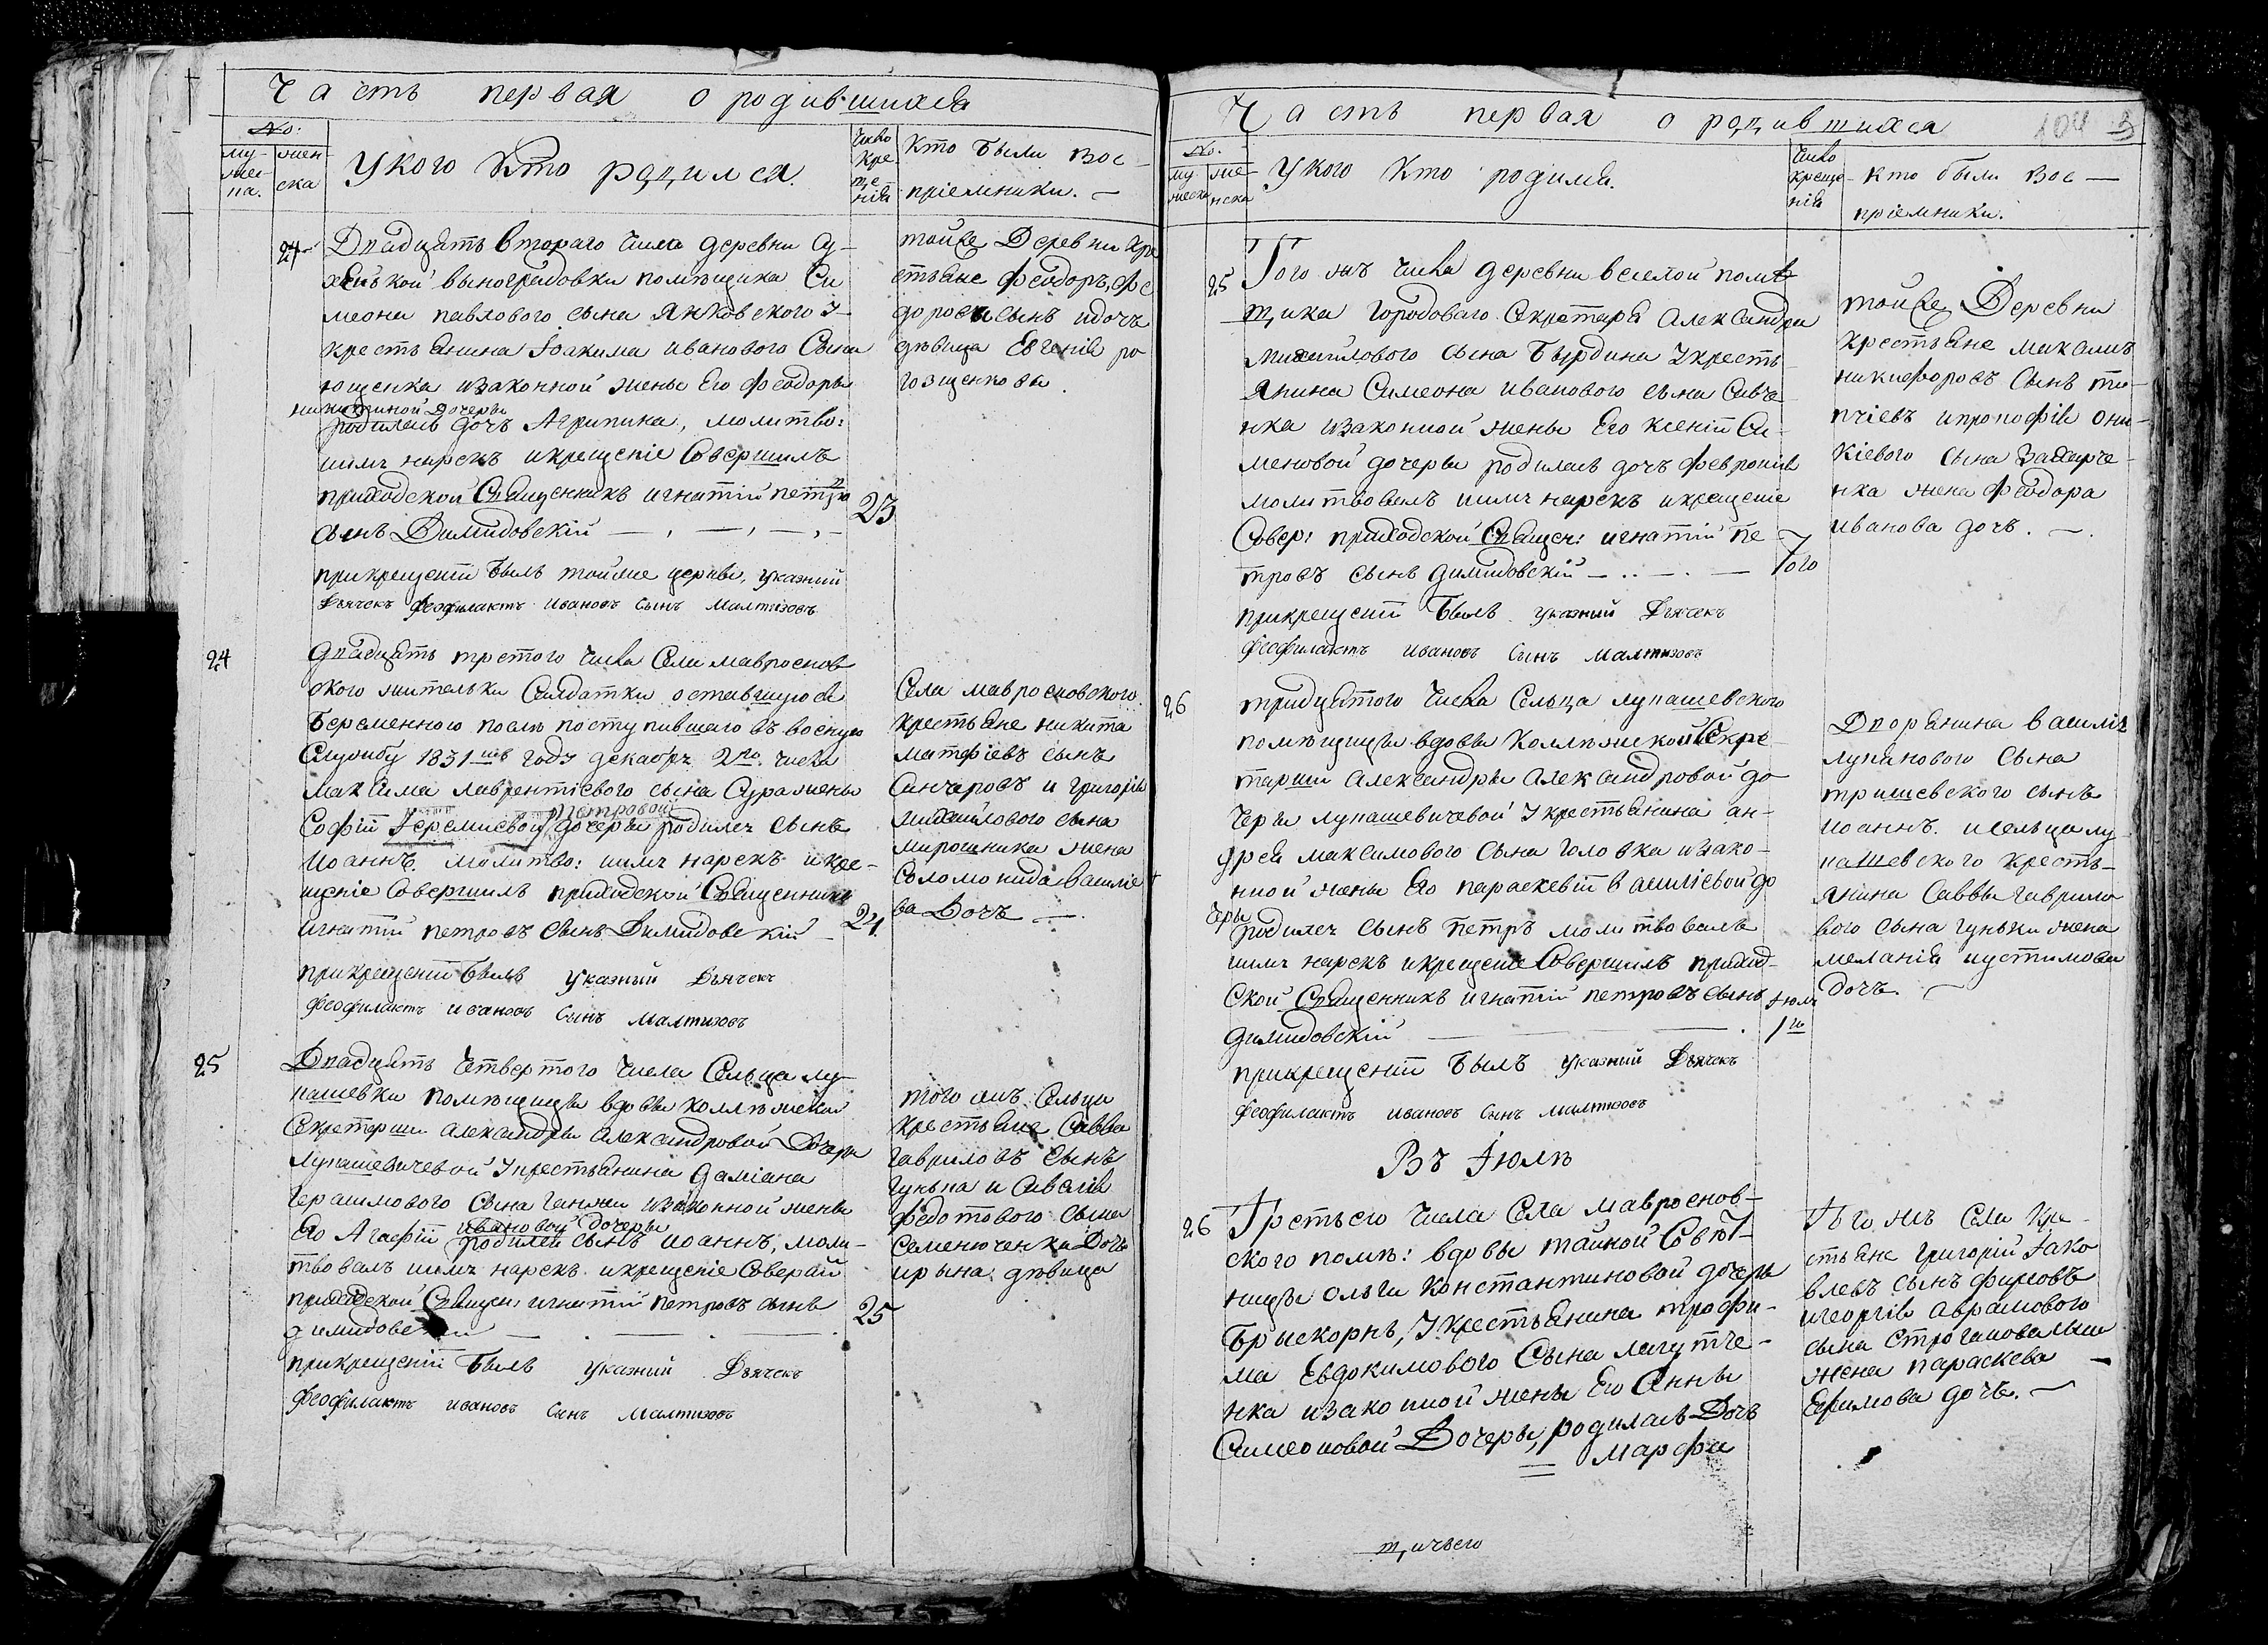 Часть первая о родившихся
№:
му-
жес-
ка.
жен-
ска
У кого кто родился.
Число
кре-
ще-
нія
Кто были вос-
пріемники. —
24
Двадцять второго числа деревни Су-
помѣщика Си
меона павлового сына Янковского у
крестьянина Іоакима Иванового Сына
ющенка изаконной жены Его Феодоры
никитиной дочеры
родилась дочь Агрипина, молитво:
имя нарекъ икрещеніе Совершилъ
приходской Священникъ игнатій петро
сынъ Димидовскій
23
прикрещеніи былъ тойже церкви, указний
Дьячекъ Феофилактъ Ивановъ Сынъ Малтизовъ
тойже Деревни кре
стьяне Феодоръ, Фе
доровъ сынъ идочь
дѣвица Евгенія ро
гозщенкова.
24
двадцять третого числа Села мавроенов
ского жительки Салдатки оставшуюся
беременного послѣ поступившаго въ воєную
Службу 1831 года декабря 2го числа
максима лаврентіевого сына Сура жены
Софіи Іереміевой дочеры родился сынъ
петровой
Иоаннъ. молитво: имя нарекъ икре-
щеніе Совершилъ приходской Священникъ
игнатій петровъ сынъ Димидовскій
24.
прикрещеніи былъ указний Дьячекъ
Феофилактъ ивановъ Сынъ Малтизовъ
Села мавроеновского
крестьяне никита
матфіевъ сынъ
Санчеровъ и григорія
михайлового сына
мирошника жена
Соломонида василіе
ва Дочь —.
25
Двадцять Четвертого числа Сельца лу-
пашевки помѣщицы вдовы коллѣжской
Секретарши александры александровой Дочеры
лупашевичевой У крестьянина даміана
герасимового сына ганжи изаконной жены
Его Агафіи ивановой дочеры
родился сынъ иоаннъ, моли-
твовалъ имя нарекъ икрещеніе Соверш
приходской Священ: игнатій петровъ сынъ
димидовскій
25
прикрещеніи былъ указний Дьячекъ
Феофилактъ ивановъ Сынъ Малтизовъ
того жъ Сельца
крестьяне Савва
гавриловъ сынъ
гунька и Савелія
федотового сына
Семенюченка Дочь
ирына дѣвица
Часть первая о родившихся
104
№.
му-
жеска
же-
нска
У кого кто родился.
Число
креще-
нія
кто были вос —
пріемники.
25
Того жъ числа деревни веселой помѣ
щика городоваго Секретаря Александра
михайлового сына Бырдина У кресть
янина Симеона иванового сына Савче-
нка изаконной жены Его ксеніи Си-
меновой дочеры родилась дочь Февронія
молитвовалъ имя нарекъ икрещеніе
Совер: приходской Священ: игнатій пе-
тровъ сынъ димидовскій
Того
прикрещеніи былъ указний Дьячекъ
Феофилактъ ивановъ Сынъ Малтизовъ
тойже Деревни
крестьяне
никифоровъ Сынъ
ипрокофія они-
кіевого сына Захарче-
нка жена Феодора
иванова дочь.
26
тридцятого числа Сельца лупашевского
помѣщицы вдовы Коллѣжской Секре-
тарши александры александровой до
черы лупашевичевой У крестьянина ан-
дрея максимового сына головка изако-
нной жены Его параскевіи василіевой до
черы
родился сынъ петръ молитвовалъ
имя нарекъ икрещеніе Совершилъ приход-
ской Священникъ игнатій петровъ сынъ
димидовскій
Іюля
1го
прикрещеніи былъ указний Дьячекъ
Феофилактъ ивановъ Сынъ малтизовъ
Дворянина василія
лукинового сына
тришевского сынъ
иоаннъ. исельца лу
пашевского кресть-
янина Саввы гаврило
вого сына гуньки жена
меланія иустимова
дочь.
Въ Іюлѣ
26
Третьего числа Села мавроенов-
ского помѣ: вдовы тайной Совѣт-
ницы ольги константиновой дочеры
Брыскорнъ, У крестьянина трофи-
ма Евдокимового Сына лагутче-
нка изаконной жены Его Анны
Симеоновой Дочеры, родилась Дочь
марфа
Того жъ Села кре-
стьяне григорій Іако
влевъ сынъ фирсовъ
игеоргія аврамового
сына
жена параскева
Ефимова дочь.